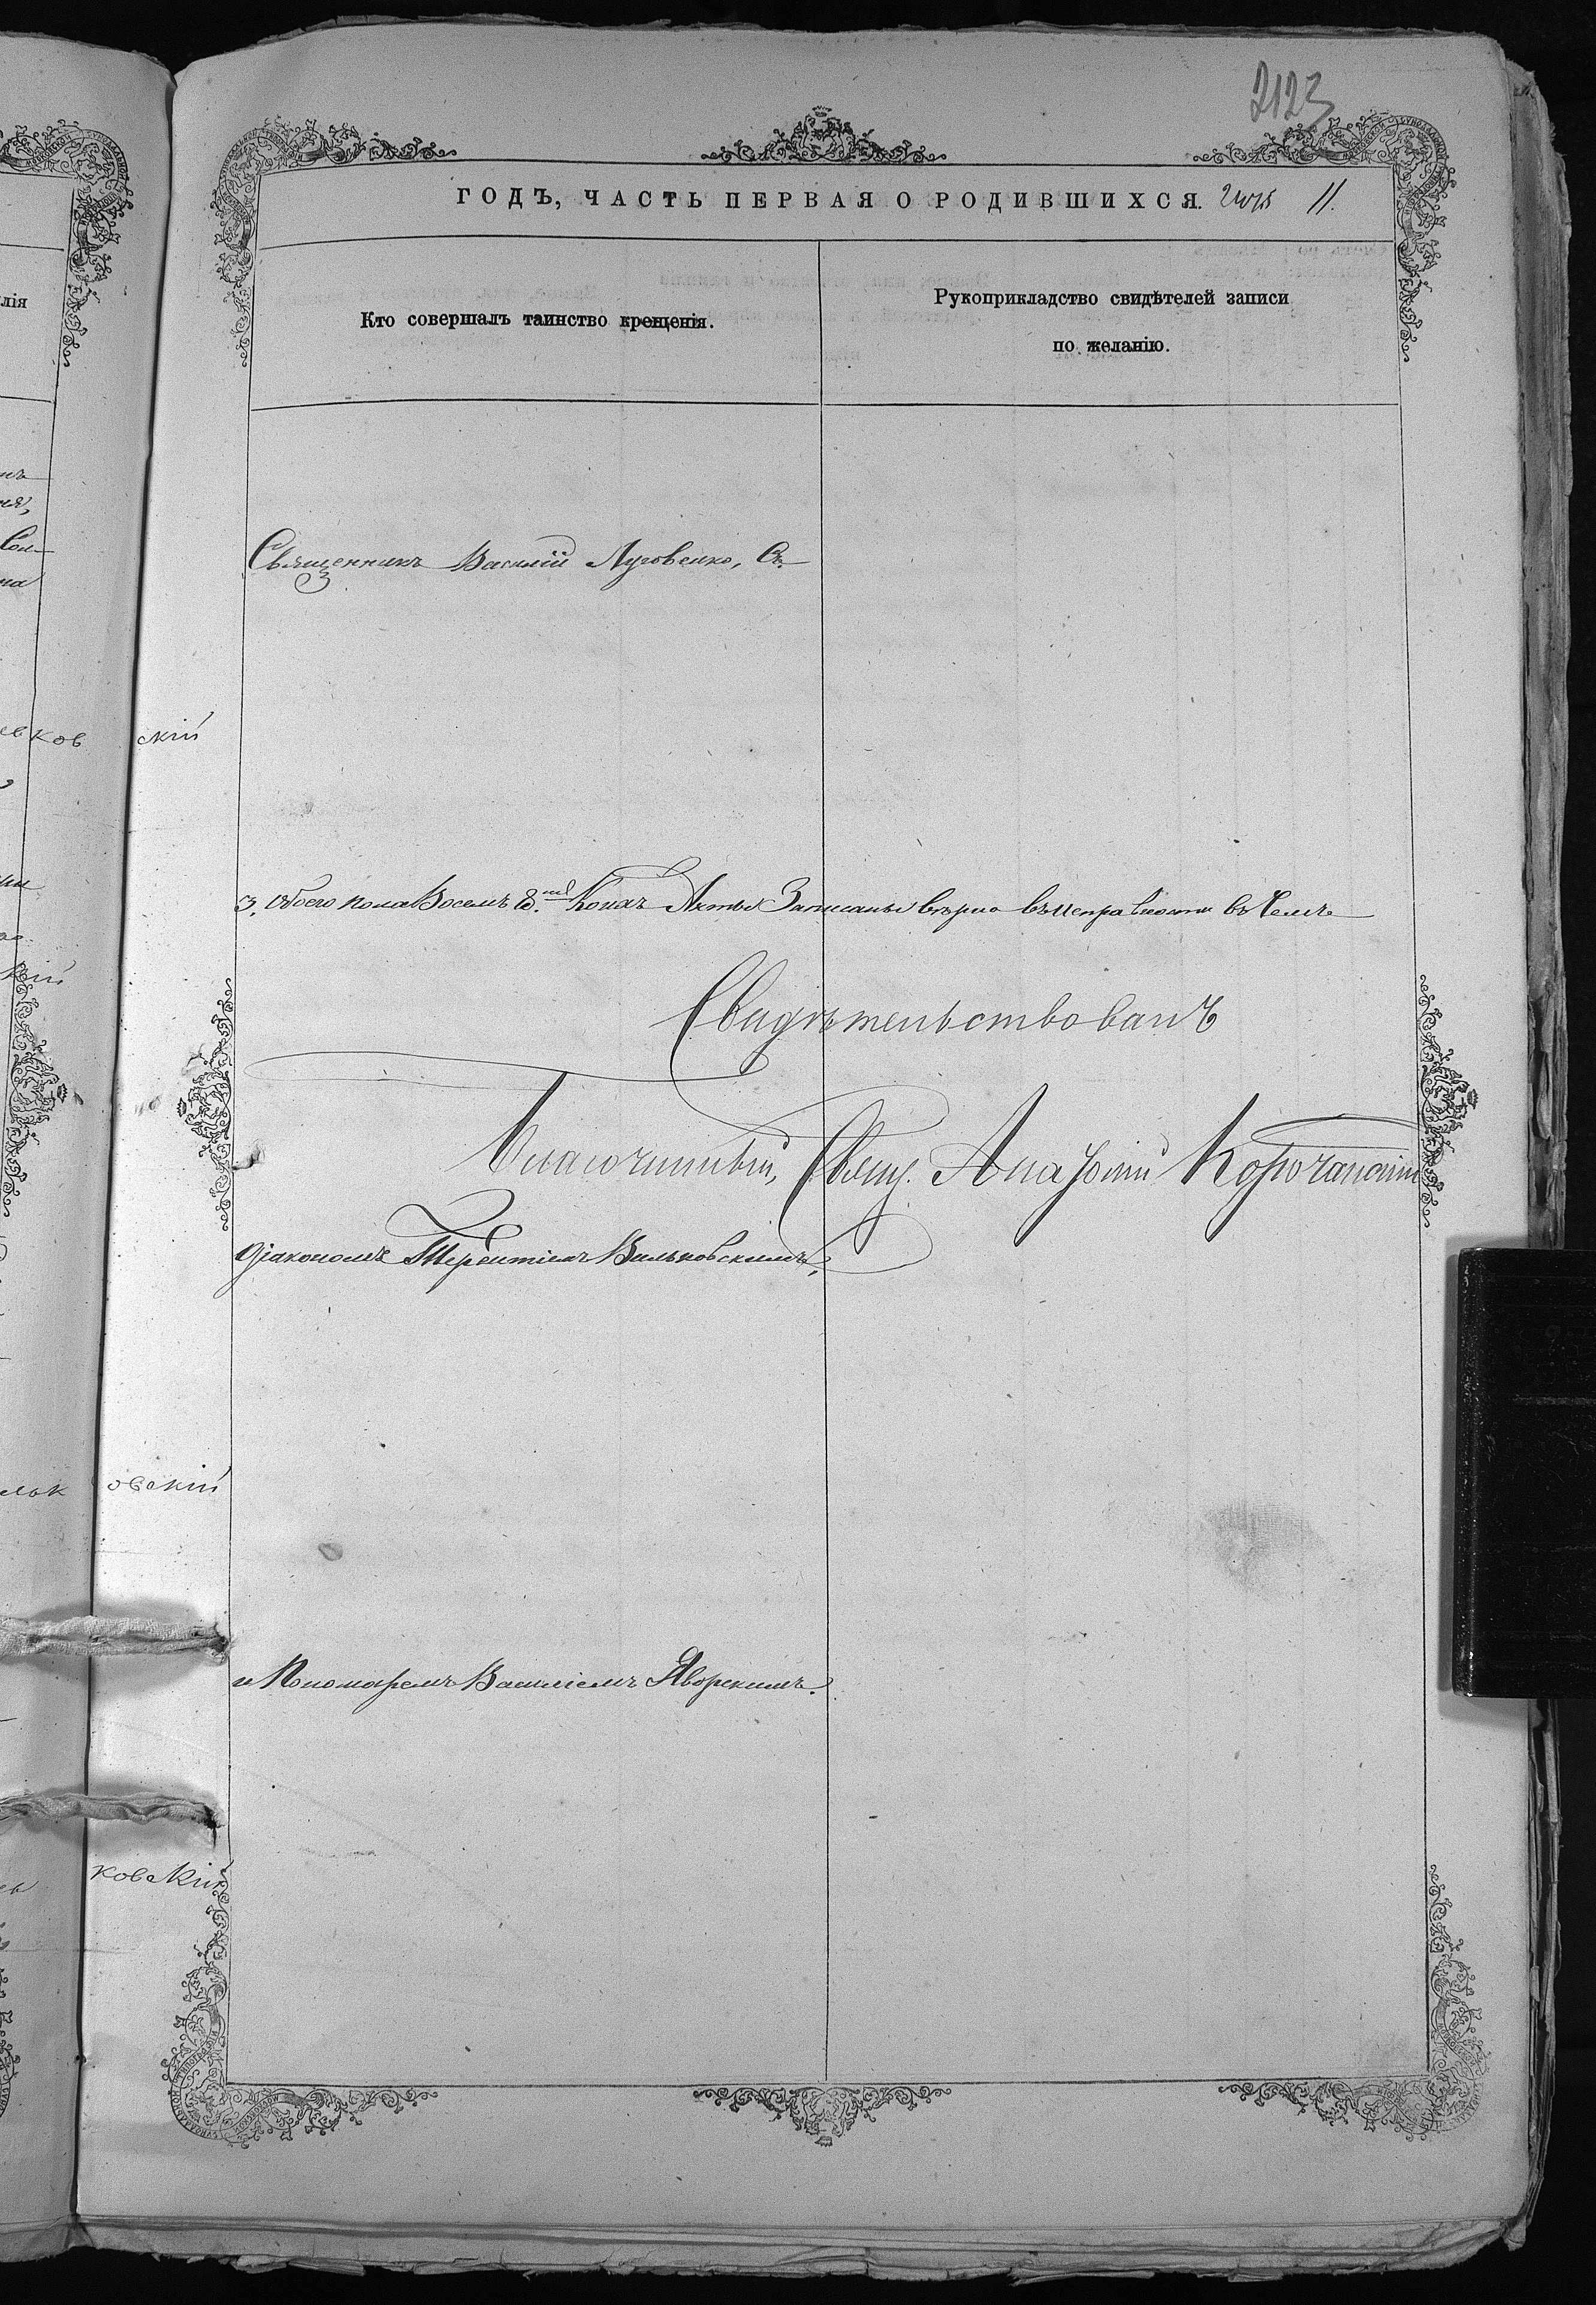 2123
ГОДЪ, ЧАСТЬ ПЕРВАЯ О РОДИВШИХСЯ. 11.
Кто совершалъ таинство крещенія.
Рукоприкладство свидѣтелей записи
по желанію.
Священникъ Василій Луговенко, Съ
скій
3, обоего пола Восемь 8. Коихъ Акты Записаны вѣрно въ исправности въ чемъ
Свидѣтельствовалъ
Благочинный, Свящ. Анатолій Корочанскій
Діакономъ Терентіемъ Вильковскимъ,
овскій
и Пономаремъ Василіемъ Яворскимъ.
ковскій